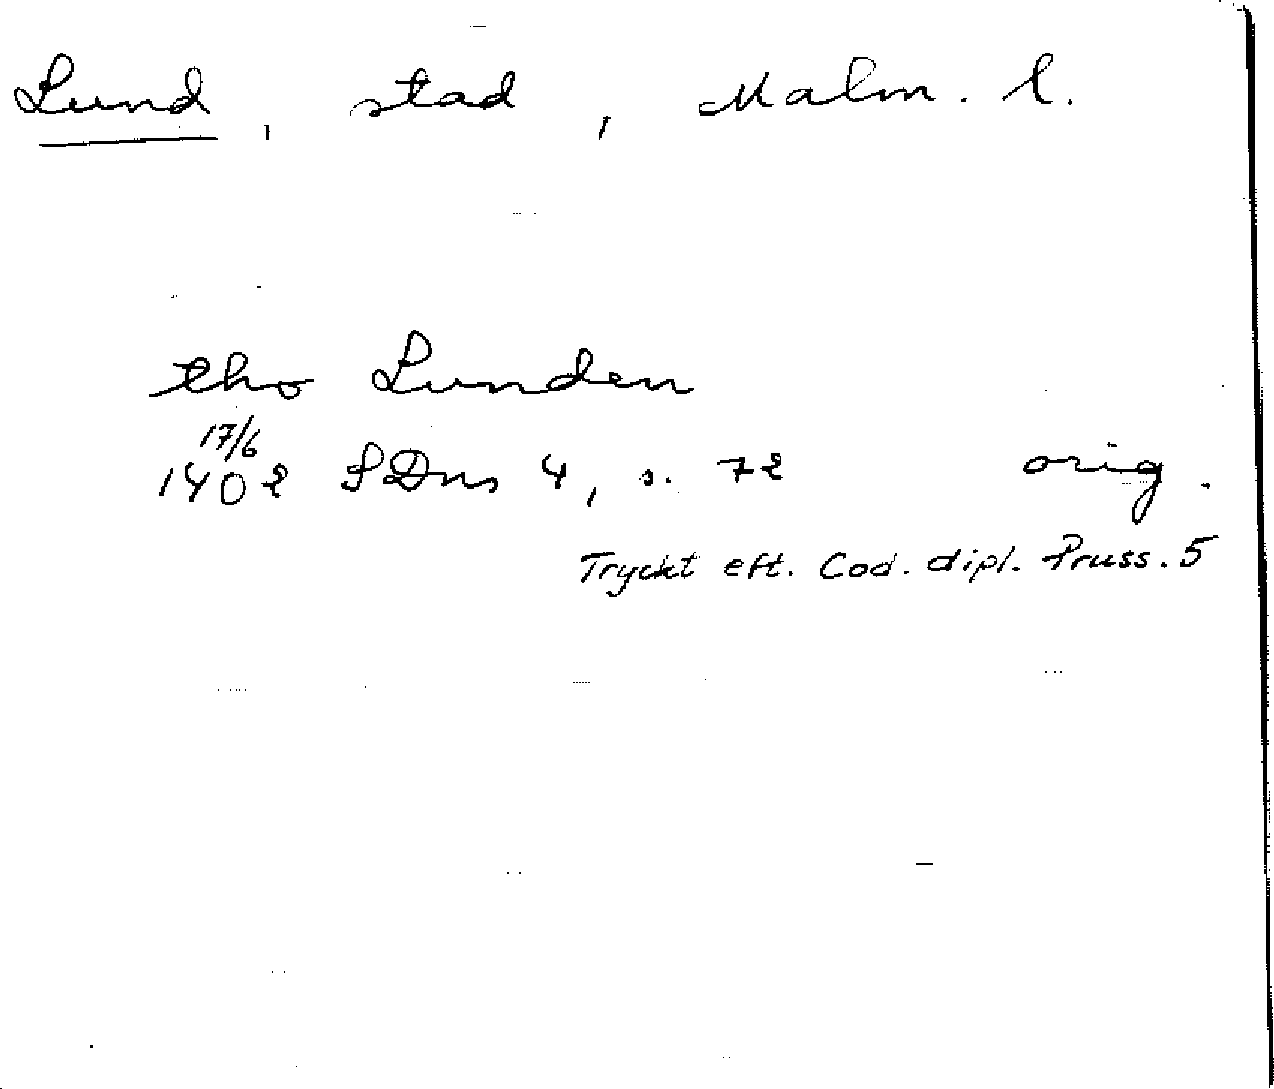 Lund, stad, Malm. l.
tho Lunden
17/6
1402 SDns 4, s. 72 orig.
Tryckt eft. Cod. dipl. Pruss. 5